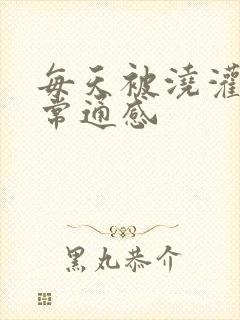 每天被浇灌
常通感
黑丸恭介